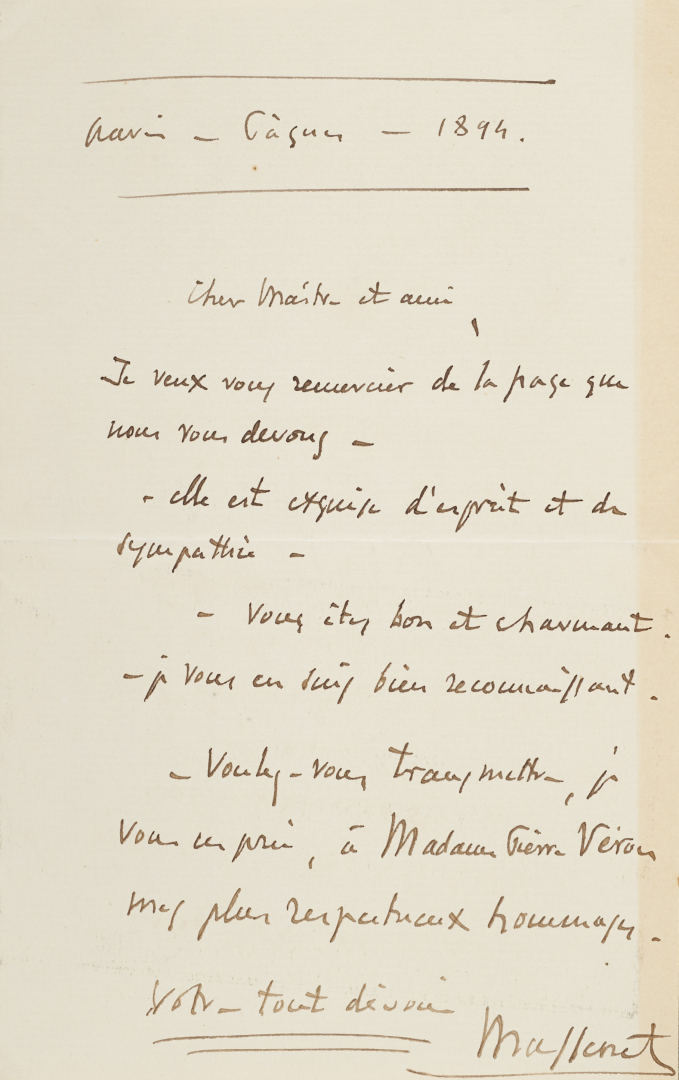 Paris – Pâques – 1894.
Cher Maître et ami,
Je veux vous remercier de la page que
nous vous devons –
– elle est exquise d'esprit et de
sympathie –
– Vous êtes bon et charmant.
– je vous en suis bien reconnaissant.
– Voulez-vous transmettre, je
vous en prie, à Madame Pierre Véron
mes plus respectueux hommages.
Votre tout dévoué
Massenet